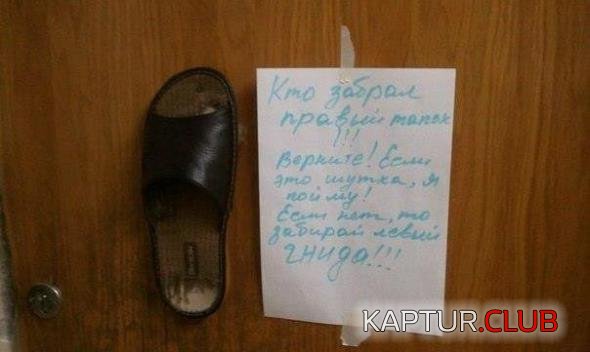 Кто забрал
правый тапок
!!!
Верните! Если
это шутка, я
пойму!
Если нет, то
забирай левый
гнида!!!
KAPTUR.CLUB